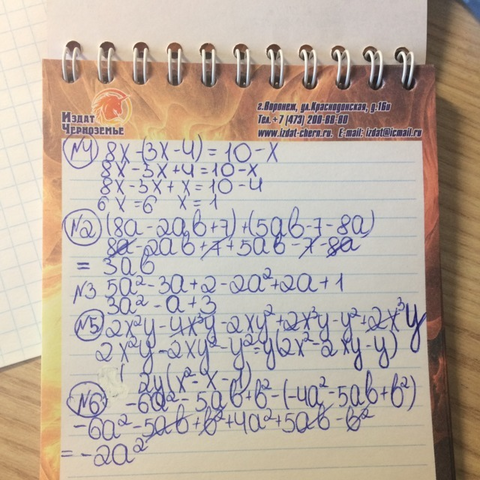 Издат
Черноземье
г.Воронеж, ул.Краснодонская, д.16и
Тел.+7 (473) 200-88-80
www.izdat-chern.ru. E-mail: izdat@icmail.ru
№4 8x-(3x-4)=10-x
8x-3x+4=10-x
8x-3x+x=10-4
6x=6 x=1
№2 (8a-2ab+7)+(5ab-7-8a)
8a-2ab+7+5ab-7-8a
= 3ab
№3 5a²-3a+2-2a²+2a+1
3a²-a+3
№5 2x²y-4x³y-2xy²+2x³y-y²+2x³y
2x²y-2xy²-y²=y(2x²-2xy-y)
2y(x²-x-1)
№6 -6a²-5ab+b²-(-4a²-5ab+b²)
-6a²-5ab+b²+4a²+5ab-b²
= -2a²